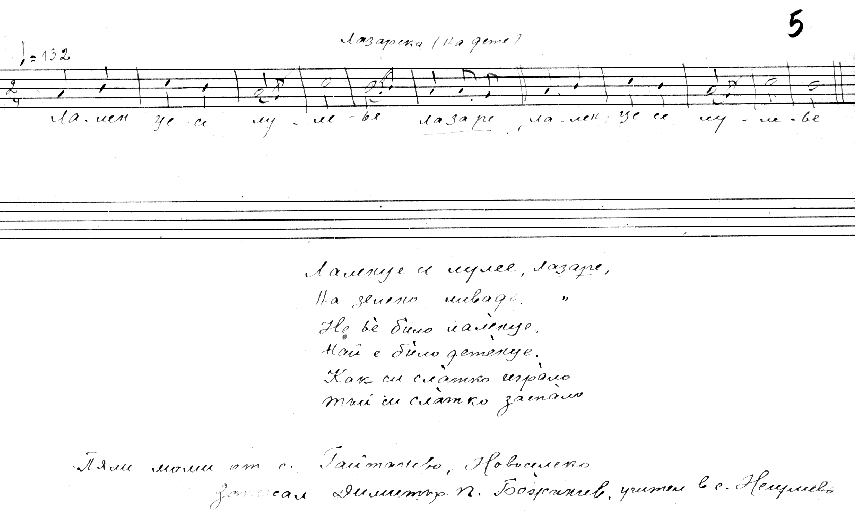 5
Лазарска (на дете)
♩=132
2/4
ла-лен це се лу - ле - ье лазаре, ла-лен це се лу - ле - ье
Лаленце се лулее, Лазаре,
На зелена ливада. "
Не ѐ било лаленце,
Най е било детенце.
Как си слàтко игрàло
тъй си слàтко заспàло
Пяли моми от с. Гайтанево, Новоселско
Записал Димитър п. Божанчев, учител в с.